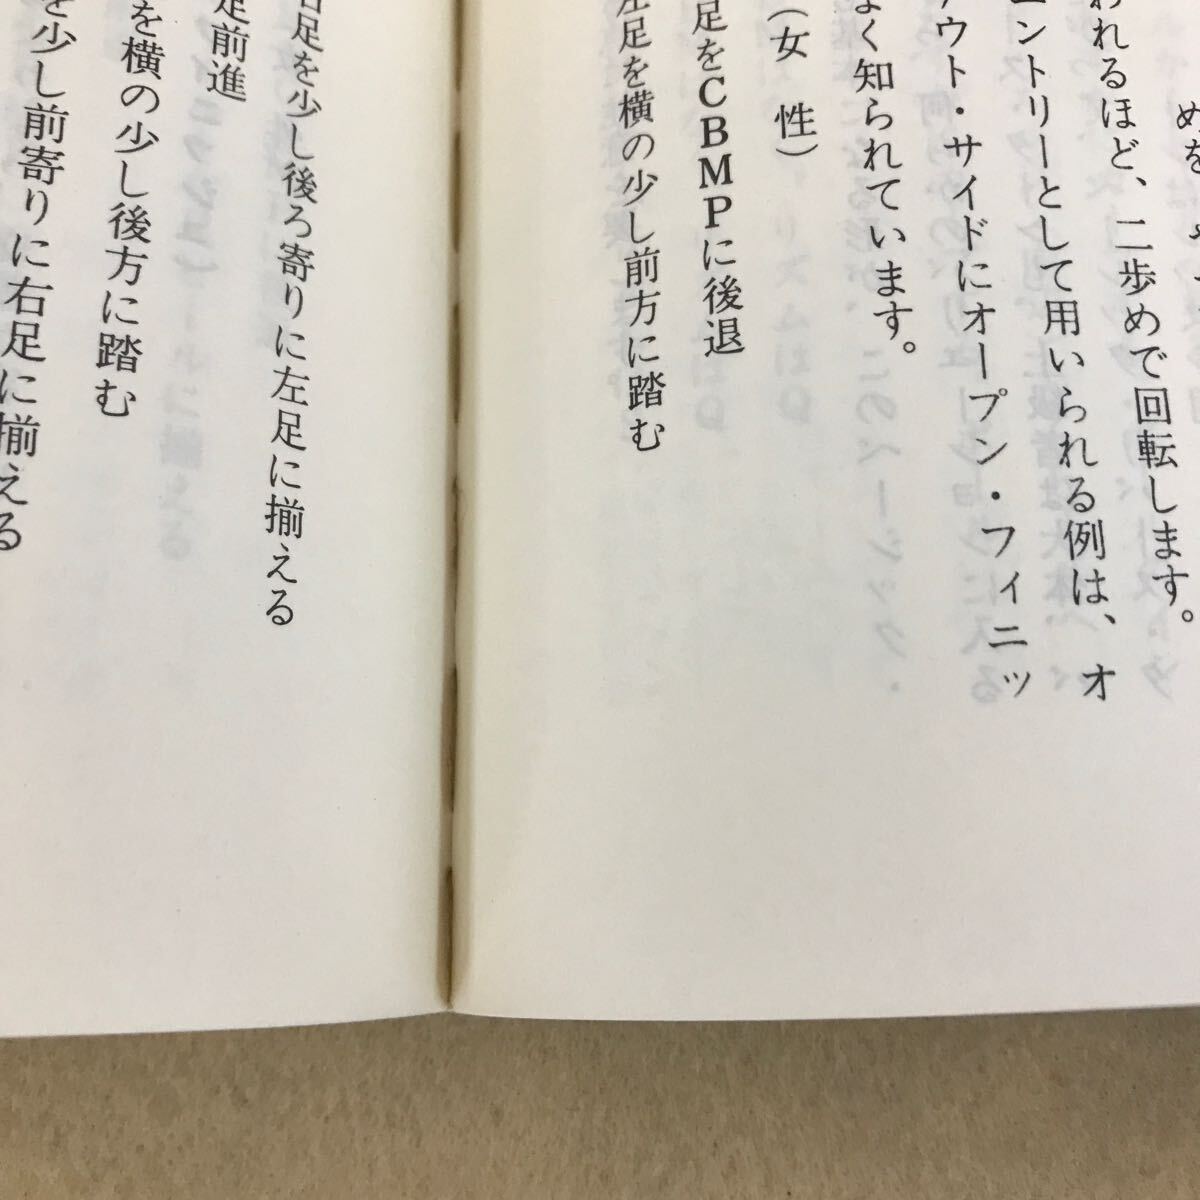 めを
われるほど、二歩めで回転します。
ントリーとして用いられる例は、オ
ウト・サイドにオープン・フィニッ
よく知られています。
(女 性)
足をCBMPに後退
左足を横の少し前方に踏む
右足を少し後ろ寄りに左足に揃える
足前進
を横の少し後方に踏む
を少し前寄りに右足に揃える